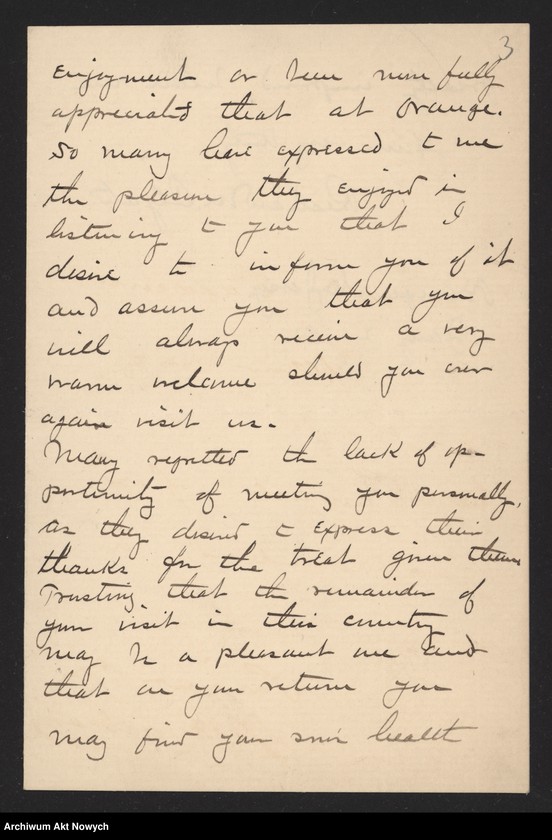 3
enjoyment or been more fully
appreciated that at Orange.
So many have expressed to me
the pleasure they enjoyed in
listening to you that I
desire to inform you of it
and assure you that you
will always receive a very
warm welcome should you ever
again visit us.
Many regretted the lack of op-
portunity of meeting you personally,
as they desired to express their
thanks for the treat given them
Trusting that the remainder of
your visit in this country
may be a pleasant one and
that on your return you
may find your son's health
Archiwum Akt Nowych